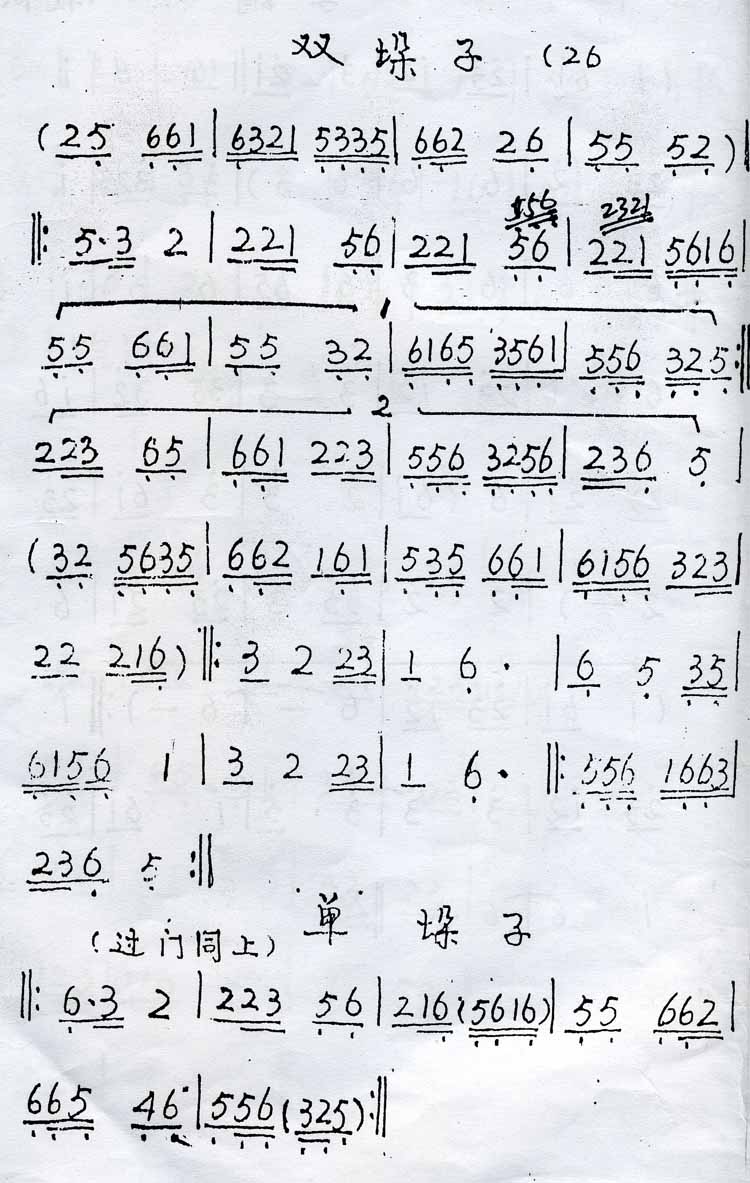 双 垛 子 (26
(25 661|6321 5335|662 26|55 52)‖
156 2321
‖: 5·3 2|221 56|221 56|221 5616|
1
55 661|55 32|6165 3561|556 325:‖
2
223 65|661 223|556 3256|236 5|
(32 5635|662 161|535 661|6156 323|
22 216)‖: 3 2 23|1 6·|6 5 35|
6156 1|3 2 23|1 6·‖: 556 1663|
236 5:‖
单 垛 子
(过门同上)
‖: 6·3 2|223 56|216(5616)|55 662|
665 46|556(325):‖